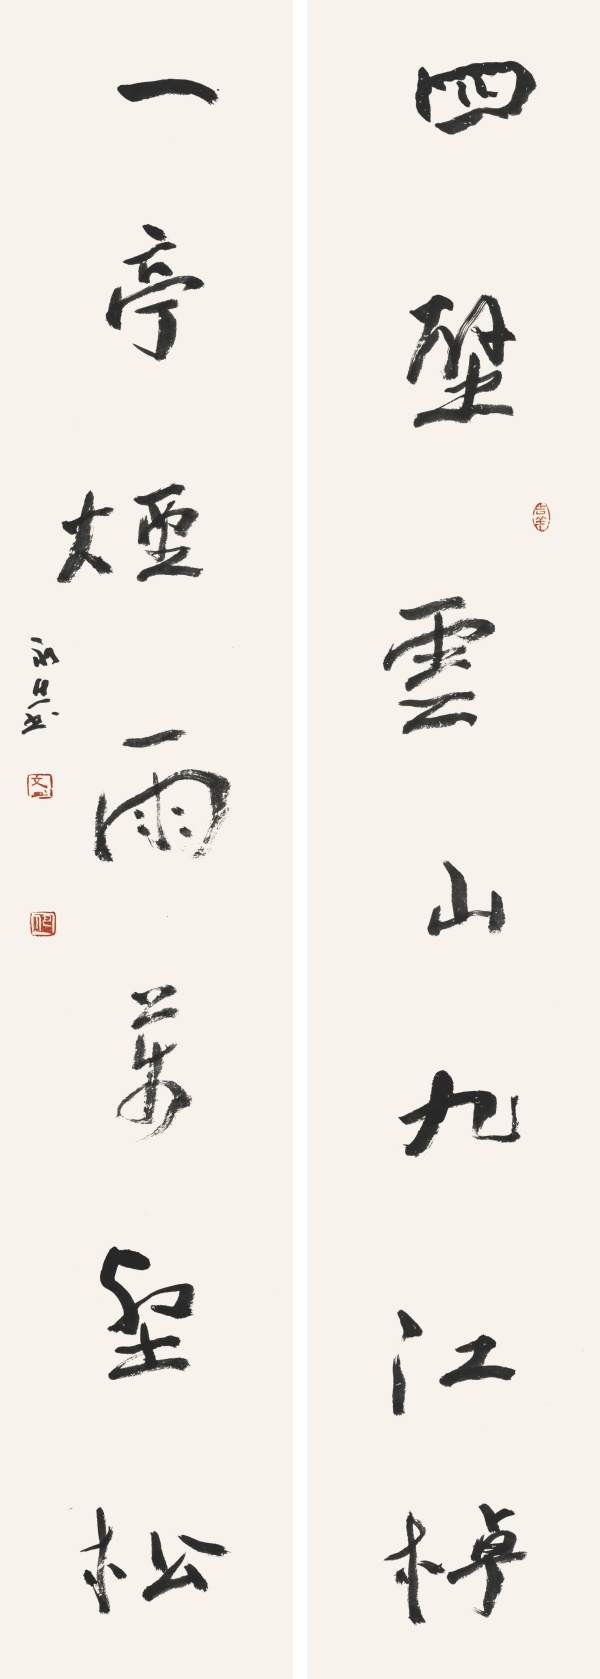 四壁雲山九江棹
一亭煙雨萬壑松